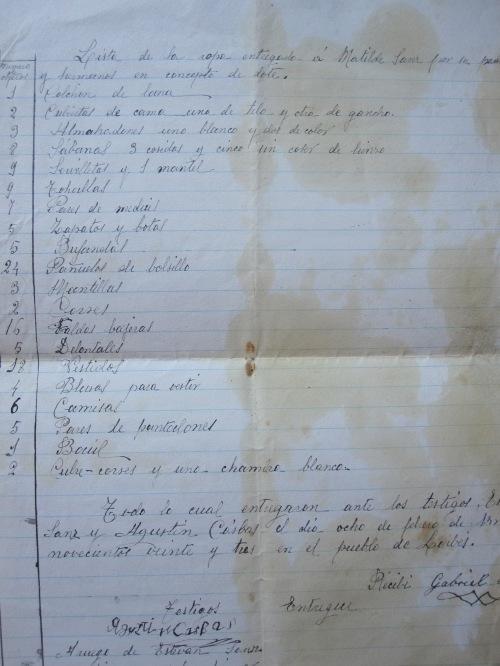 Lista de la ropa entregada á Matilde Sanz por su
y hermanos en concepto de dote.
1 Colchon de lana
2 Cubiertas de cama una de tela y otra de gancho.
3 Almahadones uno blanco y dos de color
8 Sábanas 3 cosidas y cinco sin coser de lienzo
9 Servilletas y 1 mantel
9 Tohallas
7 Pares de medias
5 Zapatos y botas
5 Bufandas
24 Pañuelos de bolsillo
3 Mantillas
2 Corses
16 Faldas bajeras
5 Delantales
18 Vestidos
4 Blusas para vestir
6 Camisas
5 Pares de pantaolones
1 Baúl
2 Cubre-corses y una chambra blanca
Todo lo cual entregaron ante los testigos,
Sanz y Agustin Casbas el día ocho de febrero de
novecientos veinte y tres en el pueblo de Lorbés.
Recibi Gabriel
Testigos Entregué
Agustin Casbas
Ruego de Estevan Sanz